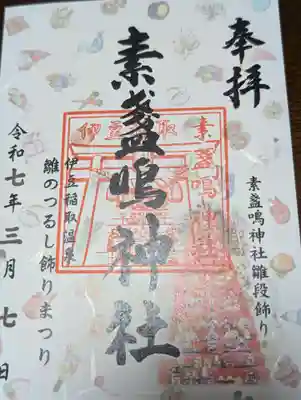 奉拝
素盞鳴神社雛段飾り
素盞鳴神社
伊豆稲取
素盞鳴神社
伊豆稲取温泉
雛のつるし飾りまつり
令和七年三月七日